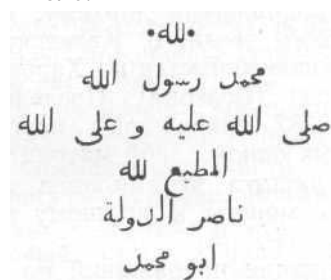 •لله•
محمد رسول الله
صلى الله عليه و على الله
المطيع لله
ناصر الدولة
ابو محمد